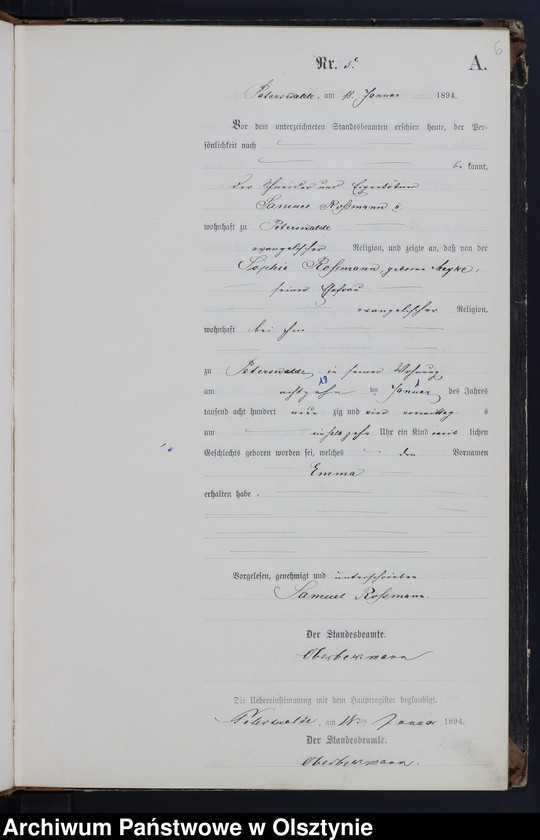 6
Nr. 5.
A.
Peterswalde, am 18. Januar 1894.
Vor dem unterzeichneten Standesbeamten erschien heute, der Per-
sönlichkeit nach
be kannt,
der Schneider und Eigenthümer
Samuel Roßmann
wohnhaft zu Peterswalde
evangelischer Religion, und zeigte an, daß von der
Sophie Roßmann, geborene
seiner Ehefrau
evangelischer Religion,
wohnhaft bei ihm
zu Peterswalde in seiner Wohnung
am achtzehn ten Januar des Jahres
18 1
tausend acht hundert neun zig und vier vormittag s
um Uhr ein Kind weib lichen
Geschlechts geboren worden sei, welches den Vornamen
Emma
erhalten habe.
Vorgelesen, genehmigt und unterschrieben
Samuel Roßmann
Der Standesbeamte.
Die Uebereinstimmung mit dem Hauptregister beglaubigt.
Peterswalde, am 18ten Januar 1894.
Der Standesbeamte.
Archiwum Państwowe w Olsztynie